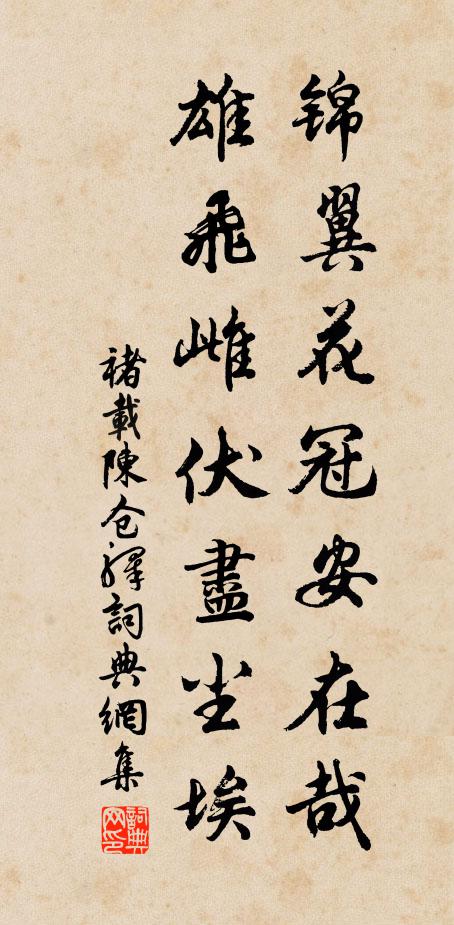 锦翼花冠安在哉
雄飛雌伏盡尘埃
褚載陳仓驛詞典網集
詞典网印